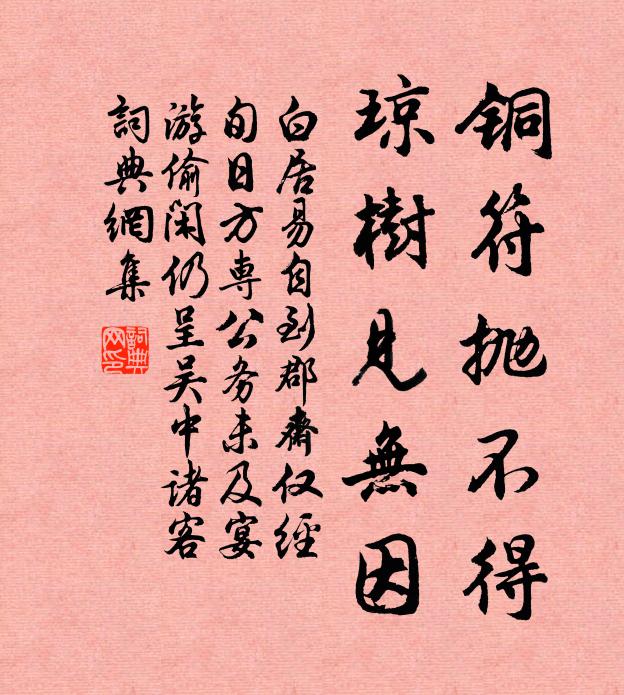 铜符抛不得
琼樹見無因
白居易自到郡齋仅經
旬日方専公务未及宴
游偷閑仍呈吴中诸客
詞典網集
詞典网印